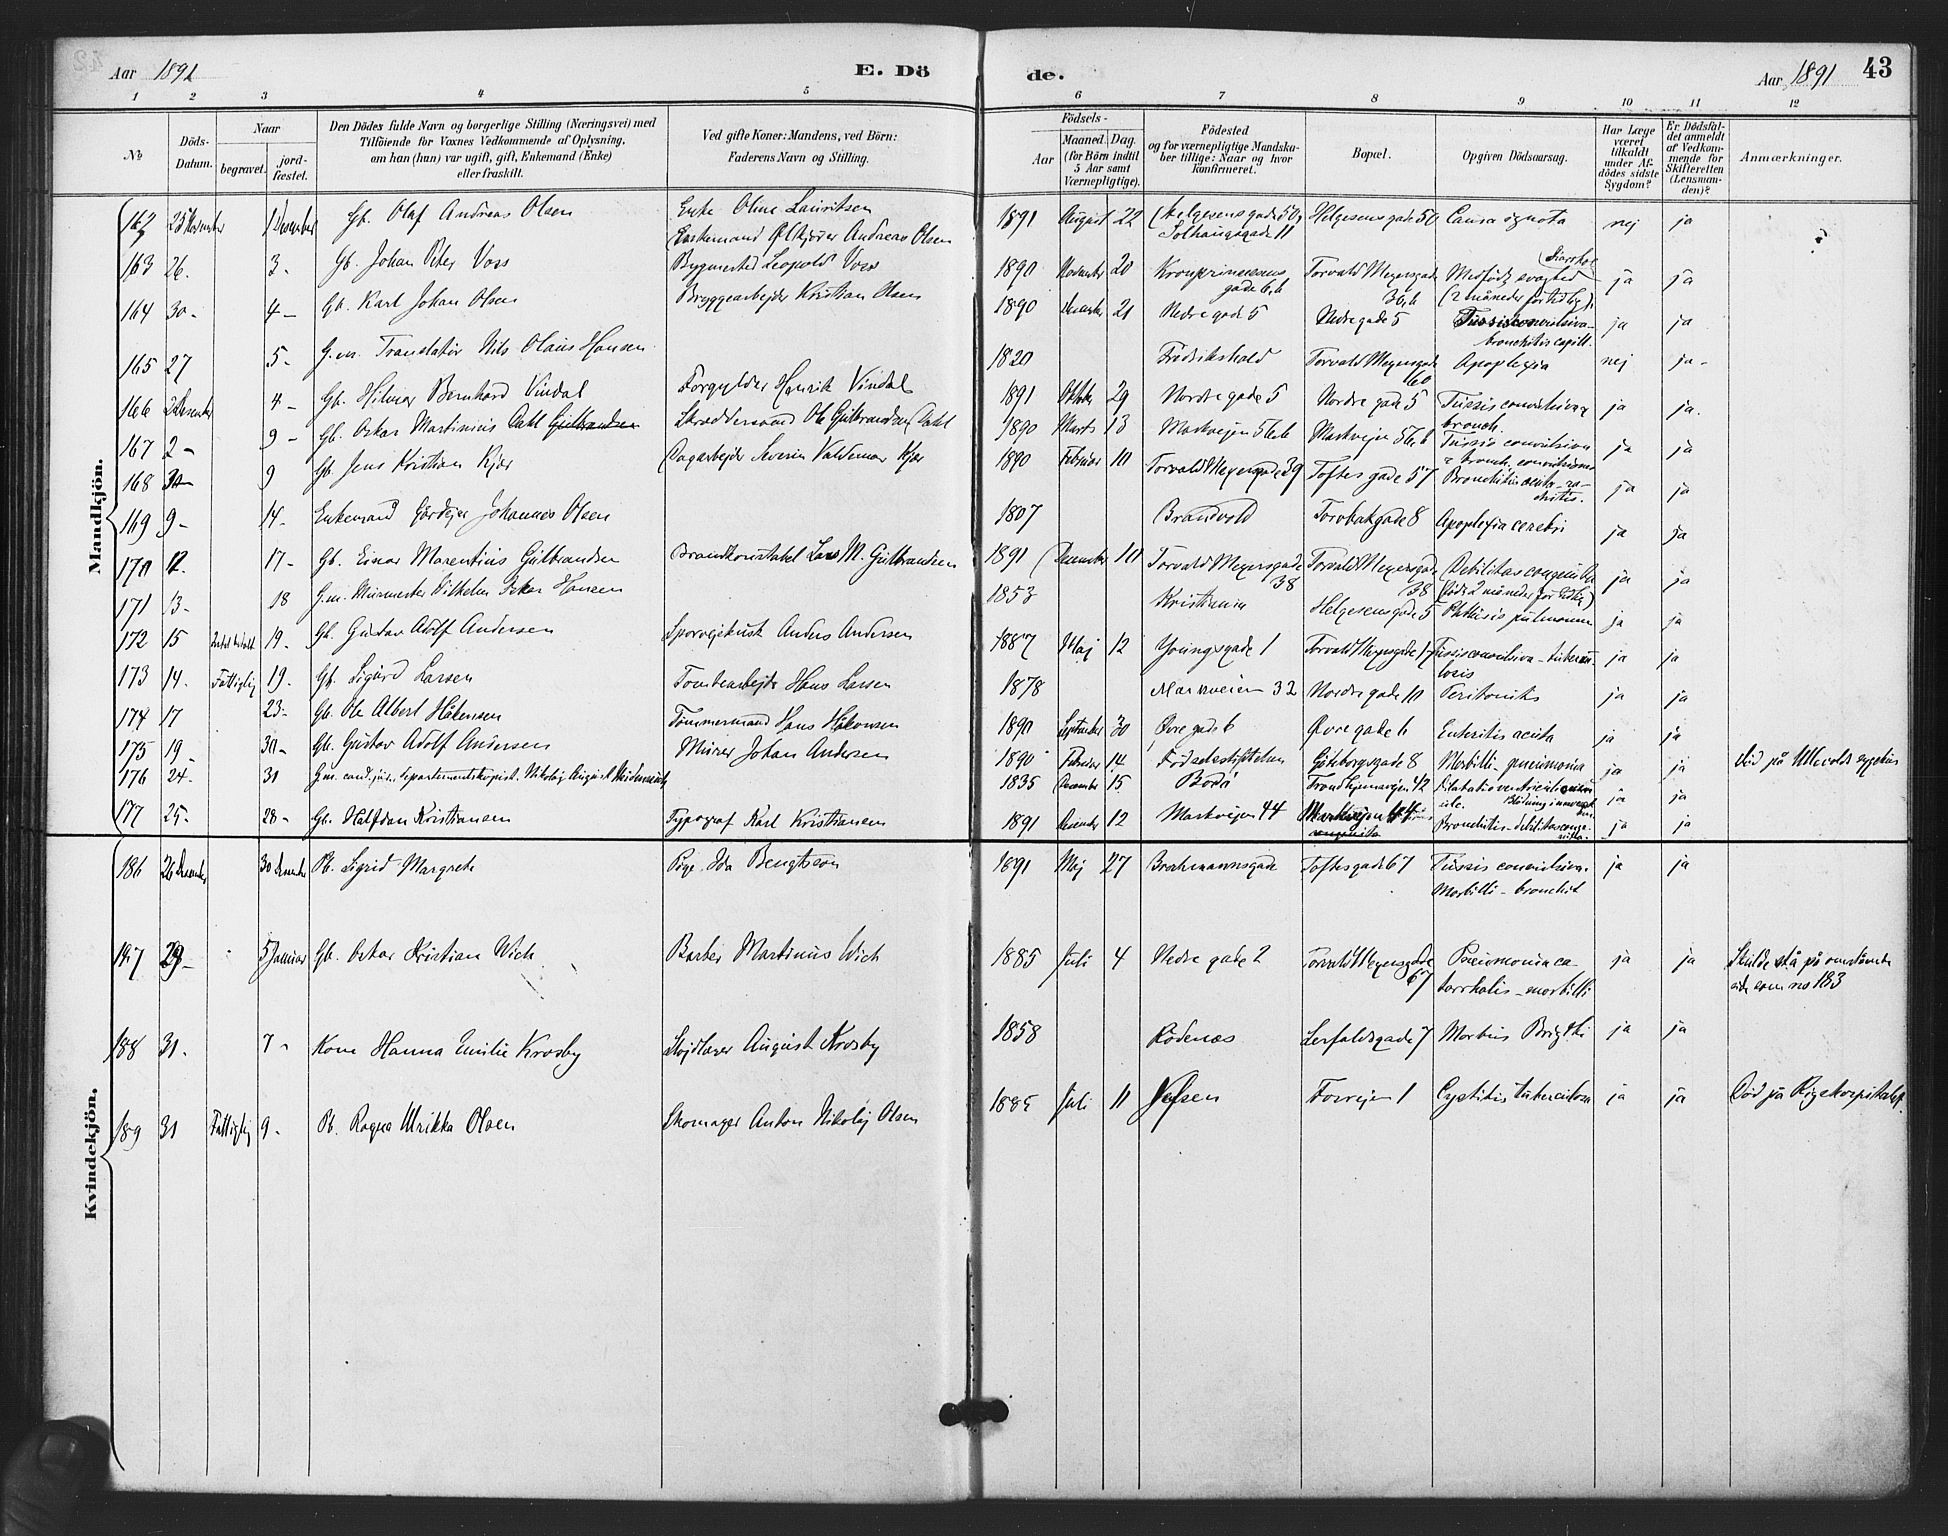 42
Aar 1891
E. Döde.
Aar 1891 43
1 2 3 4 5 6 7 8 9 10 11 12
№
Döds-Datum.
Naar
begravet.
jord-fæstet.
Den Dödes fulde Navn og borgerlige Stilling (Næringsvei) med
Tilföiende for Voxnes Vedkommende af Oplysning,
om han (hun) var ugift, gift, Enkemand (Enke)
eller fraskilt.
Ved gifte Koner: Mandens, ved Börn:
Faderens Navn og Stilling.
Födsels-
Aar
Maaned. Dag.
(for Börn indtil
5 Aar samt
Værnepligtige).
Födested
og for værnepligtige Mandska-
ber tillige: Naar og hvor
konfirmeret.
Bopæl.
Opgiven Dödsaarsag.
Har Læge
været
tilkaldt
under Af-
dödes sidste
Sygdom?
Er Dödsfal-
det anmeldt
af Vedkom-
mende for
Skifteretten
(Lensman-
den)?
Anmærkninger.
Mandkjön.
162 25 November 1 Desember Gb. Olaf Andreas Olsen Enke Oline Lauritsen 1891 August 22 Helgesensgade 50 Helgesensgade 50 Causa ignota nej ja
Enkemand Ølkjører Andreas Olsen Solhaugsgade 11
163 26. 3 - Gb. Johan Peter Voss Bygmester Leopold Voss 1890 November 20 Kronprinsessens gade 6b Torvald Meyersgade 30b Medfødt svaghed (2 måneder for tidlig) ja ja
164 30 - 4 - Gb. Karl Johan Olsen Bryggearbejder Kristian Olsen 1890 Desember 21 Nedre gade 5 Nedre gade 5 Tussis convulsiva - bronchitis capill. ja ja
165 27 5 - G.m. Translatør Nils Olaus Hansen 1820 Fredrikshald Torvald Meyersgade 60 Apoplexia nej ja -
166 2 Desember 4 - Gb. Hilmar Bernhard Vindal Forgylder Henrik Vindal 1891 Oktober 29 Nordre gade 5 Nordre gade 5 Tussis convulsiva bronch. ja ja.
167 2 - 9 - Gb. Oskar Martinius Dahl Gulbrandsen Skræddersvend Ole Gulbrandsen Dahl 1890 Marts 13 Markvejen 56b Markvejen 56b Tussis convulsiva & bronch. convulsiones ja ja
168 30 - 9 Gb. Jens Kristian Kjær Dagarbejder Severin Valdemar Kjær 1890 Februar 10 Torvald Meyersgade 39 Toftes gade 57 Bronchitis acuta - rachitis. ja ja
169 9 - 14 - Enkemand Gårdejer Johannes Olsen 1807 Brandvold Torvbakgade 8 Apoplexia cerebri ja ja
170 12. 17 - Gb. Einar Marentius Gulbrandsen Brandkonstabel Lars M. Gulbrandsen 1891 Desember 10 Torvald Meyersgade 38 Torvald Meyersgade 38 Debilitas congenita (født 2 måneder for tidlig) ja ja
171 13 - 18 G.m. Murmester Vilhelm Oskar Hansen 1853 Kristiania Helgesensgade 5 Phthisis pulmonum ja ja
172 15 19 - Gb. Gustav Adolf Andersen Sporvejskusk Anders Andersen 1887 Maj 12 Youngsgade 1 Torvald Meyersgade Tussis convulsiva - tuberculosis ja ja
173 14. Fattiglig 19 - Gb. Sigurd Larsen Tomtearbejder Hans Larsen 1878 Markveien 32 Nordre gade 10 Peritonitis ja ja
174 17 23 - Gb. Ole Albert Håkensen Tømmermand Hans Håkonsen 1890 September 30 Øvre gade 6 Øvre gade 6 Enteritis acuta ja ja
175 19 - 30 - Gb. Gustav Adolf Andersen Murer Johan Andersen 1890 Februar 14 Fødselsstiftelsen Göteborgsgade 8 Morbilli, pneumonia ja ja Død på Ullevolds sygehus
176 24 - 31 G.m. cand. jur. departementskopist Nikolaj August 1835 Desember 15 Bodø Trondhjemsvejen 42 ja ja
177 25 - 28 - Gb. Halfdan Kristiansen Typograf Karl Kristiansen 1891 Desember 12 Markvejen 44 Markvejen 44 Bronchitis - debilitas congenita ja ja
Kvindekjön.
186 26 Desember 30 Desember Pb. Sigrid Margrete Pige Ida Bengtsson 1891 Maj 27 Brochmannsgade Toftesgade 67 Tussis convulsiva. Morbilli - bronchit ja ja
187 29 - 5 Januar Gb. Oskar Kristian Wich Barber Martinius Wich 1885 Juli 4 Nedre gade 2 Torvald Meyersgade 67 Pneumonia catarrhalis - morbilli ja ja Skulde stå på omstående side som no 183
188 31. 7 - Kone Hanna Emilie Krosby Sløjdlærer August Krosby 1858 Rødenæs Lerfaldsgade 7 Morbus Brigthi ja ja
189 31 Fattiglig 9 - Pb. Ragna Ulrikka Olsen Skomager Anton Nikolaj Olsen 1885 Juli 11 Vefsen Torvejen 1 Cystitis tuberculosa ja ja Død på Rigshospitalet.